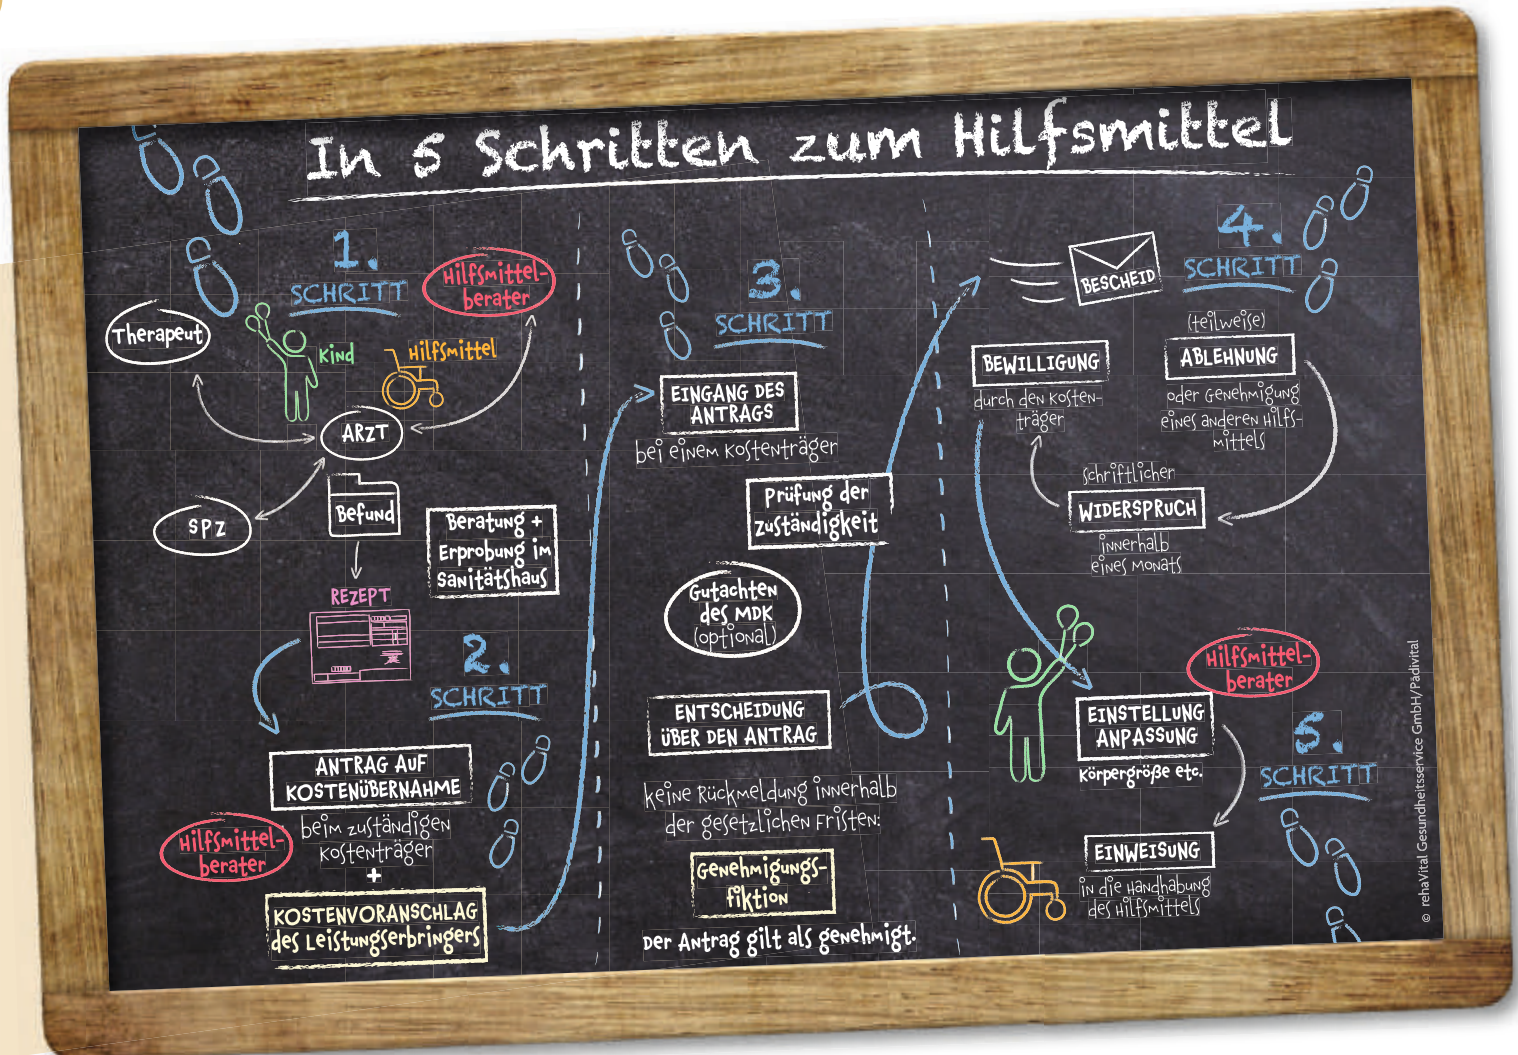 In 5 Schritten zum Hilfsmittel
1.
SCHRITT
Hilfsmittel-
berater
Therapeut
Kind
Hilfsmittel
ARZT
SPZ
Befund
Beratung +
Erprobung im
Sanitätshaus
REZEPT
2.
SCHRITT
ANTRAG AUF
KOSTENÜBERNAHME
beim zuständigen
Kostenträger
Hilfsmittel-
berater
+
KOSTENVORANSCHLAG
des Leistungserbringers
3.
SCHRITT
EINGANG DES
ANTRAGS
bei einem Kostenträger
Prüfung der
Zuständigkeit
Gutachten
des MDK
(optional)
ENTSCHEIDUNG
ÜBER DEN ANTRAG
Keine Rückmeldung innerhalb
der gesetzlichen Fristen:
Genehmigungs-
fiktion
Der Antrag gilt als genehmigt.
4.
SCHRITT
BESCHEID
BEWILLIGUNG
durch den Kosten-
träger
(teilweise)
ABLEHNUNG
oder Genehmigung
eines anderen Hilfs-
mittels
Schriftlicher
WIDERSPRUCH
innerhalb
eines Monats
Hilfsmittel-
berater
5.
SCHRITT
EINSTELLUNG
ANPASSUNG
Körpergröße etc.
EINWEISUNG
in die Handhabung
des Hilfsmittels
© rehaVital Gesundheitsservice GmbH/Pädivital